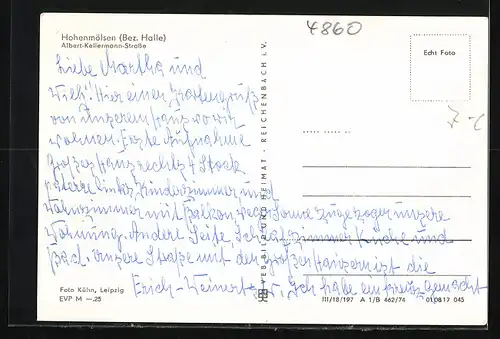 4860
Hohenmölsen (Bez. Halle)
Albert-Kellermann-Straße
Echt Foto
Liebe Martha und
Willi! Hier einen Kartengruß
von unserem Haus wo wir
wohnen. Erste Aufnahme
großes Haus rechts 4 Stock
links Kinderzimmer und
Wohnzimmer mit Balkon, zugezogen unsere
Wohnung. Andere Seite, Schlafzimmer Küche und
Bad. unsere Straße mit den großen Häusern ist die
Erich-Weinert- Ich habe ein gemacht
VEB BILD UND HEIMAT · REICHENBACH I. V.
Foto Kühn, Leipzig
EVP M —.25
III/18/197 A 1/B 462/74 01 08 17 045